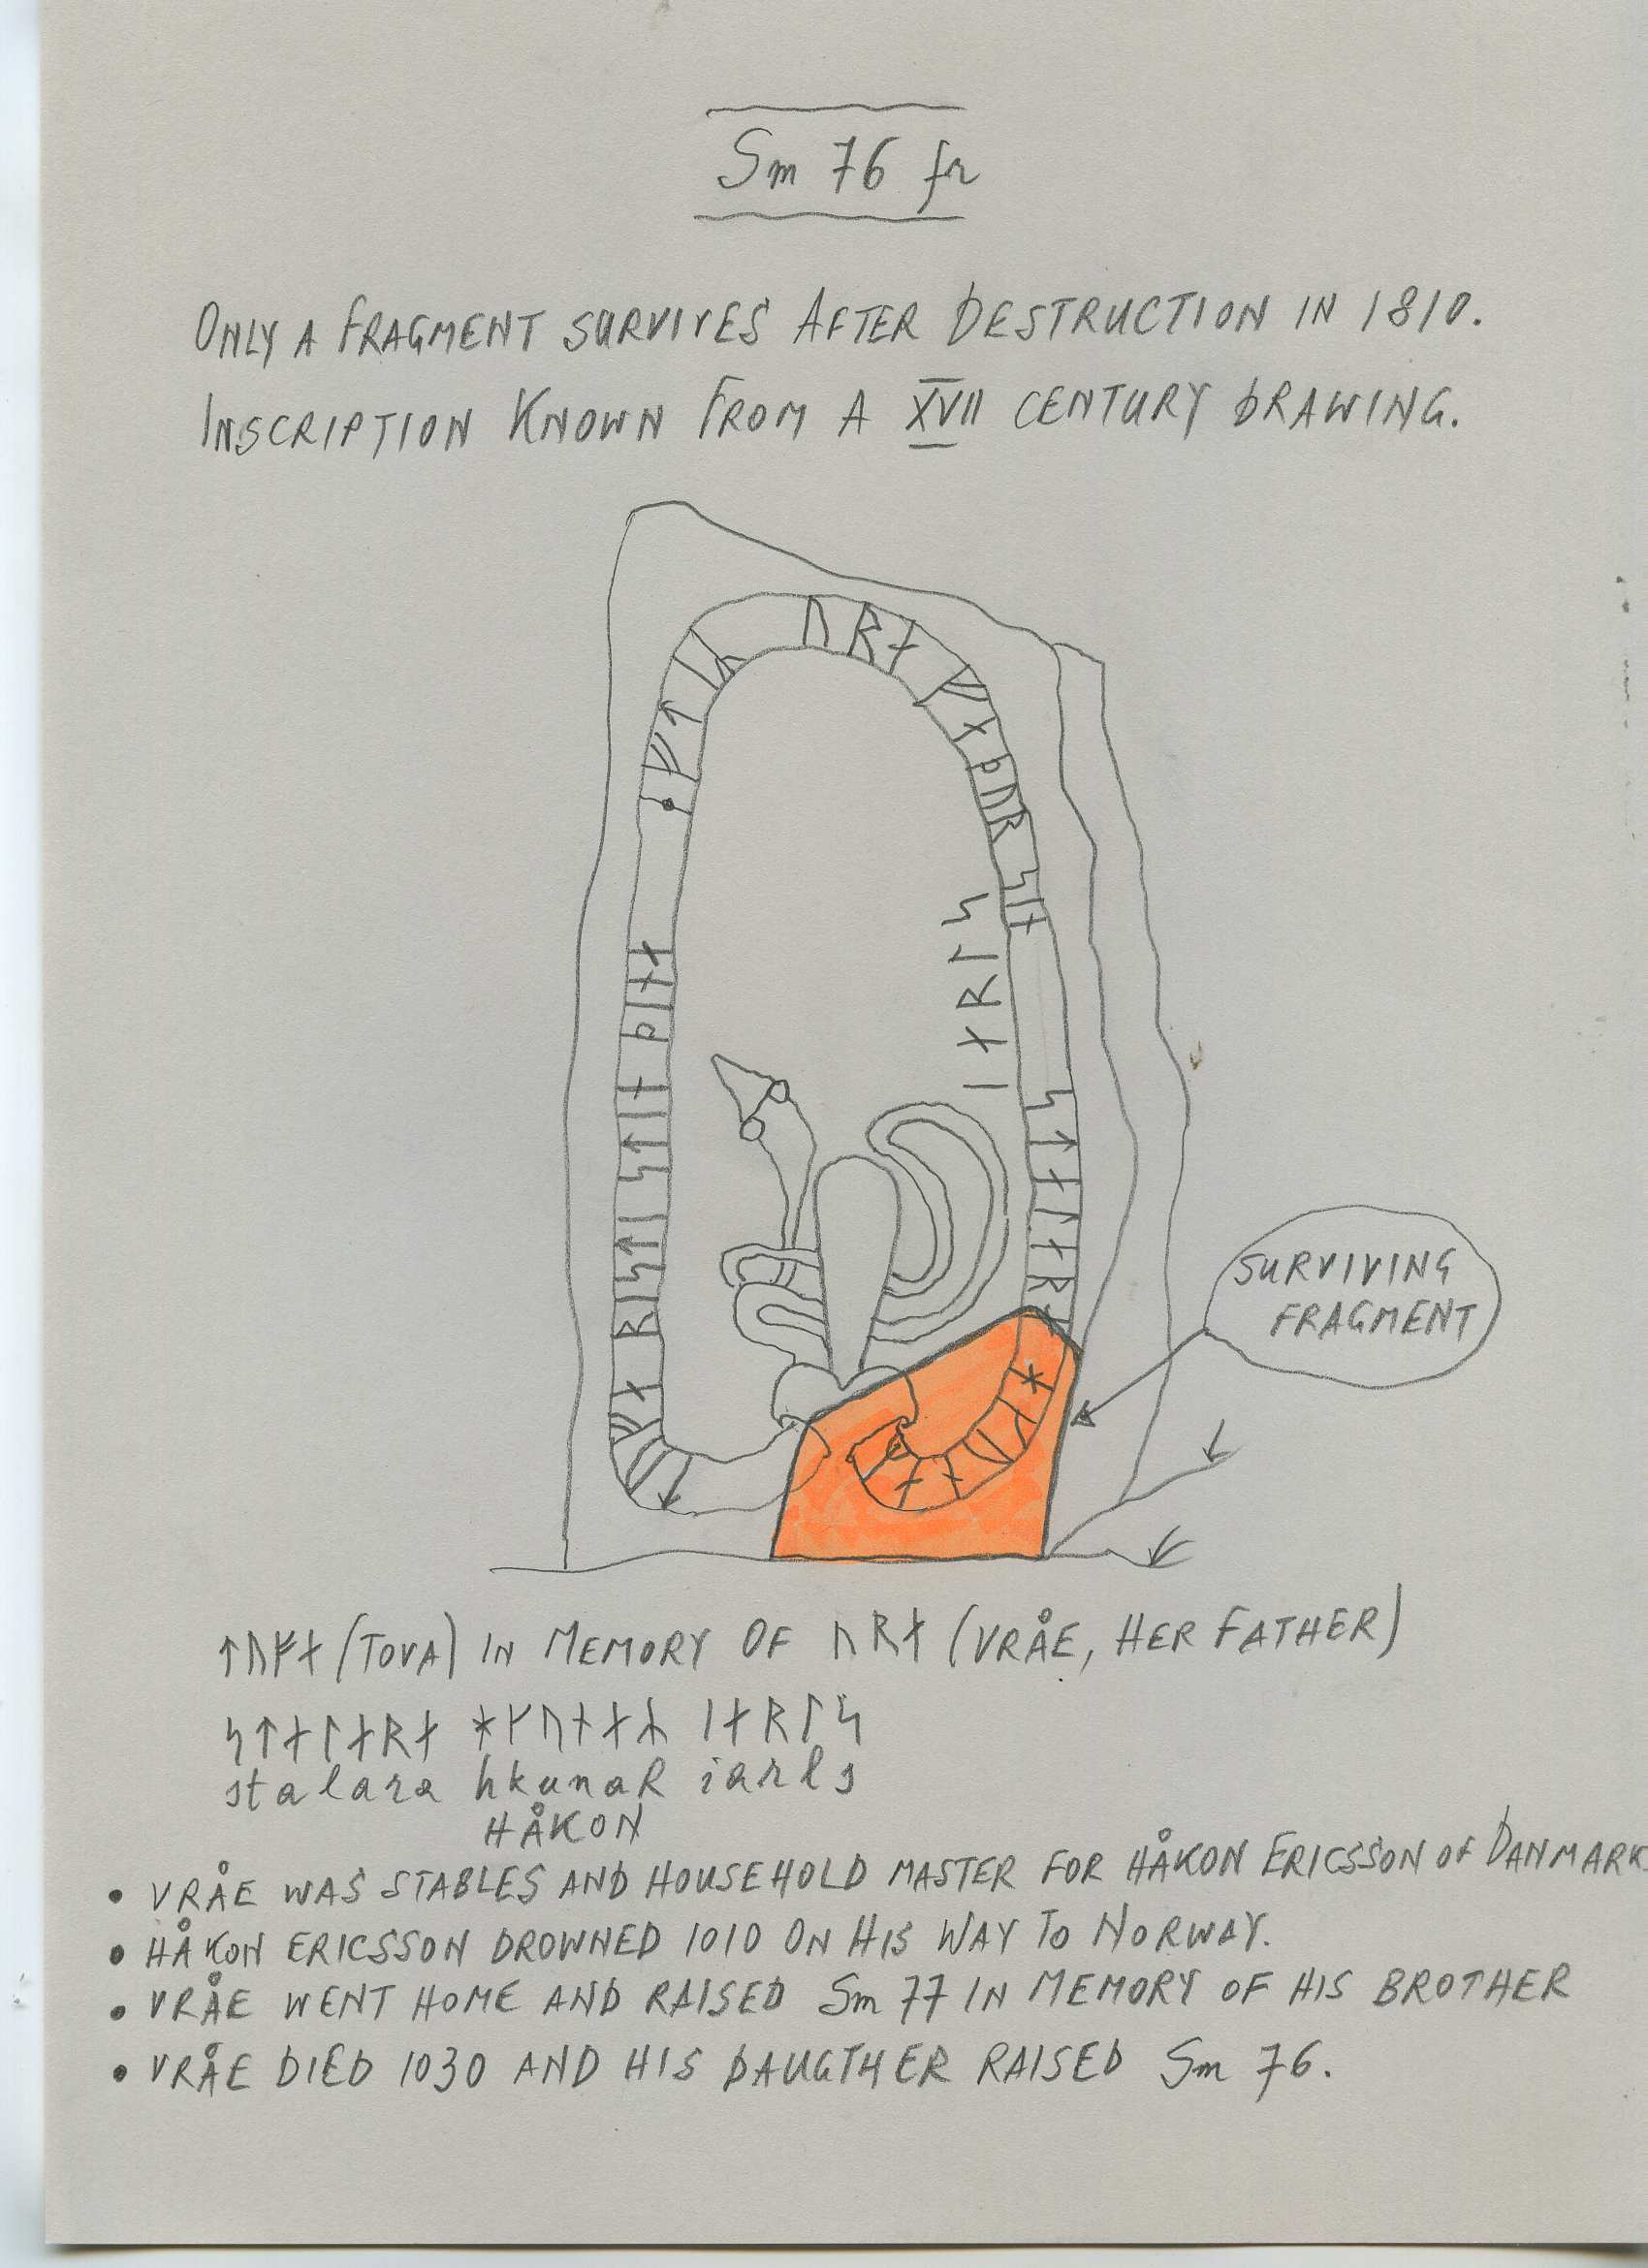 Sm 76 fr
ONLY A FRAGMENT SURVIVES AFTER DESTRUCTION IN 1810.
INSCRIPTION KNOWN FROM A XVII CENTURY DRAWING.
ᛏᚢᚠᛅ ᚱᛁᛋᛏᛁ ᛋᛏᛁᚾ ᚦᛁᚾᛅ ᛂᚠᛏᛁᛦ ᚢᚱᛅ ᚠᛅᚦᚢᚱ ᛋᛁᚾ ᛋᛏᛅᛚᛅᚱᛅ ᚼᚴᚢᚾᛅᛦ
ᛁᛅᚱᛚᛋ
SURVIVING
FRAGMENT
ᛏᚢᚠᛅ (TOVA) IN MEMORY OF ᚢᚱᛅ (VRÅE, HER FATHER)
ᛋᛏᛅᛚᛅᚱᛅ ᚼᚴᚢᚾᛅᛦ ᛁᛅᚱᛚᛋ
stalara hkunaR iarls
HÅKON
• VRÅE WAS STABLES AND HOUSEHOLD MASTER FOR HÅKON ERICSSON OF DANMARK
• HÅKON ERICSSON DROWNED 1010 ON HIS WAY TO NORWAY.
• VRÅE WENT HOME AND RAISED Sm 77 IN MEMORY OF HIS BROTHER
• VRÅE DIED 1030 AND HIS DAUGTHER RAISED Sm 76.